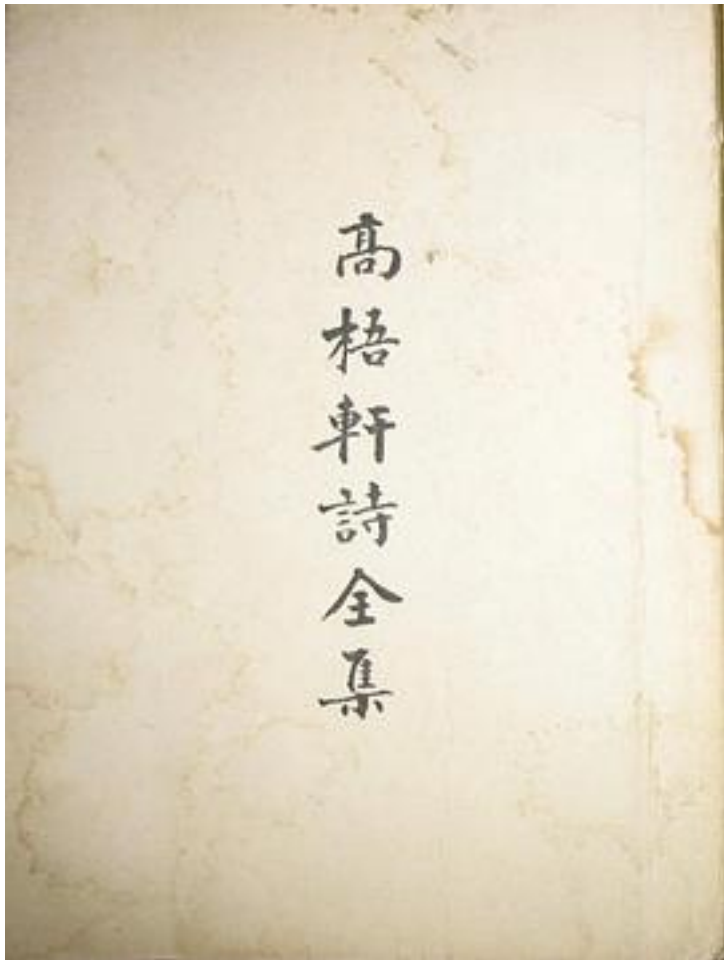 高梧軒詩全集